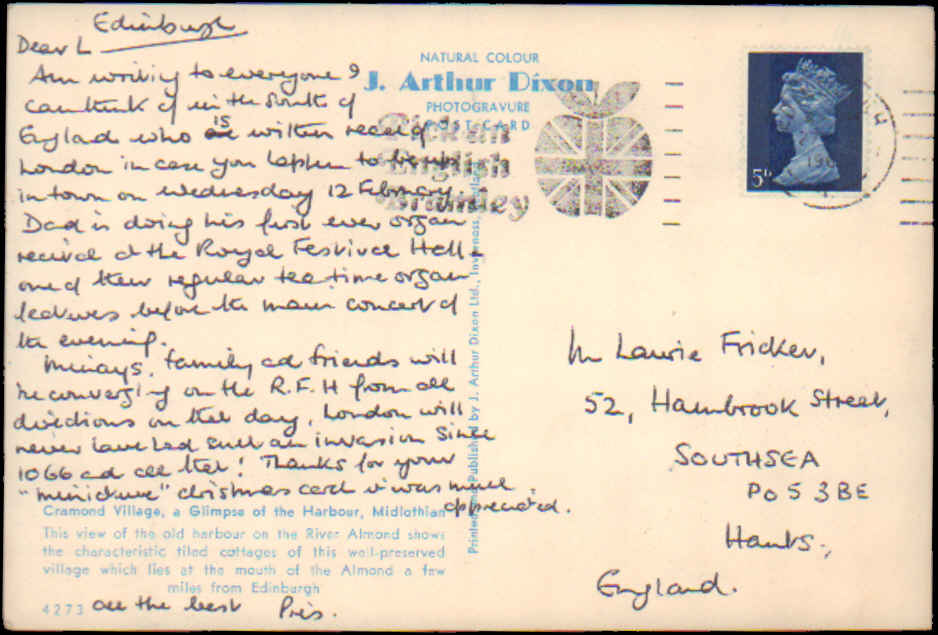 Edinburgh
Dear L
Am writing to everyone I
can think of in the South of
England who is within reach of
London in case you happen to be
in town on Wednesday 12 February.
Dad is doing his first ever organ
recital at the Royal Festival Hall -
one of their regular tea-time organ
lectures before the main concert of
the evening.
family and friends will
be converging on the R.F.H from all
directions on that day, London will
never have had such an invasion since
1066 and all that! Thanks for your
"miniature" christmas card it was much
appreciated.
Cramond Village, a Glimpse of the Harbour, Midlothian
This view of the old harbour on the River Almond shows
the characteristic tiled cottages of this well-preserved
village which lies at the mouth of the Almond a few
miles from Edinburgh
4273
all the best Pris.
NATURAL COLOUR
J. Arthur Dixon
PHOTOGRAVURE
POST CARD
Printed and Published by J. Arthur Dixon Ltd., Inverness,
Pick an
English
Bramley
5D
Mr Laurie Fricker,
52, Hambrook Street,
SOUTHSEA
PO5 3BE
Hants,
England.